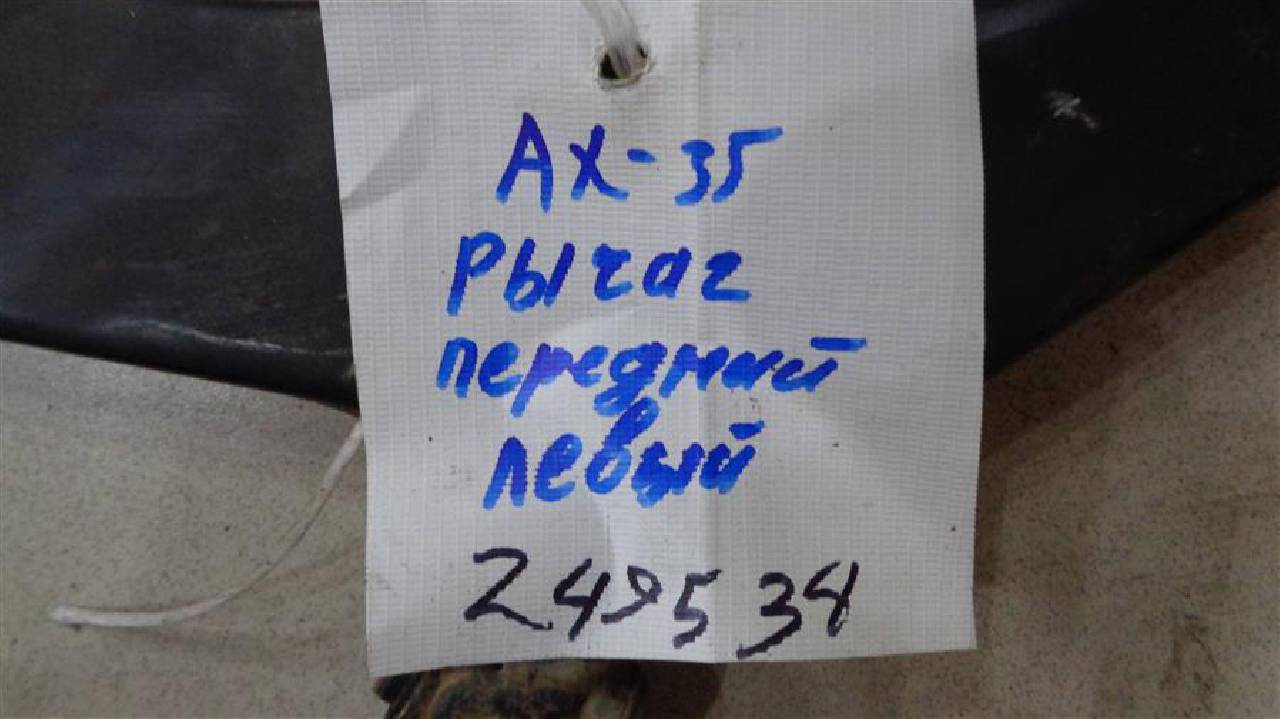 АХ-35
рычаг
передний
левый
249534